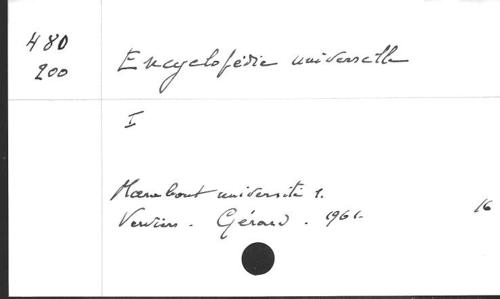 480
200
Encyclopédie universelle
I
Marabout université 1.
Verviers. Gérard. 1961.
16